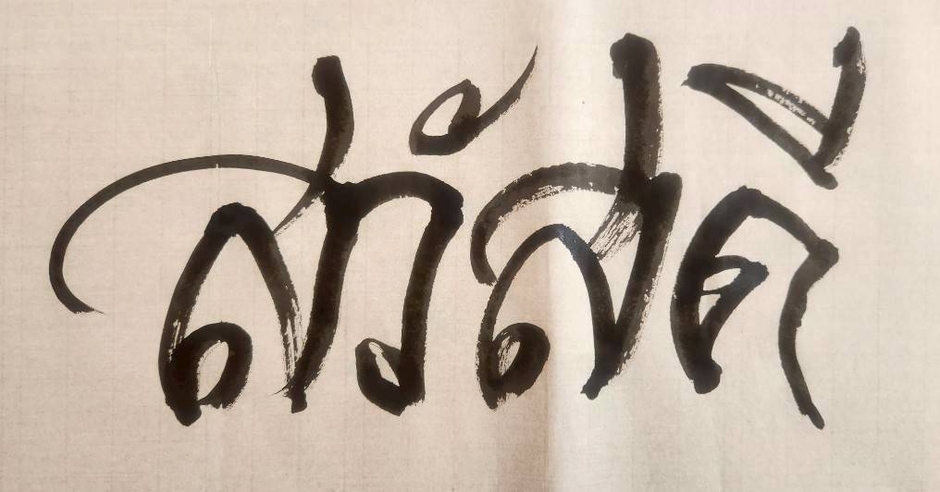 สวัสดี